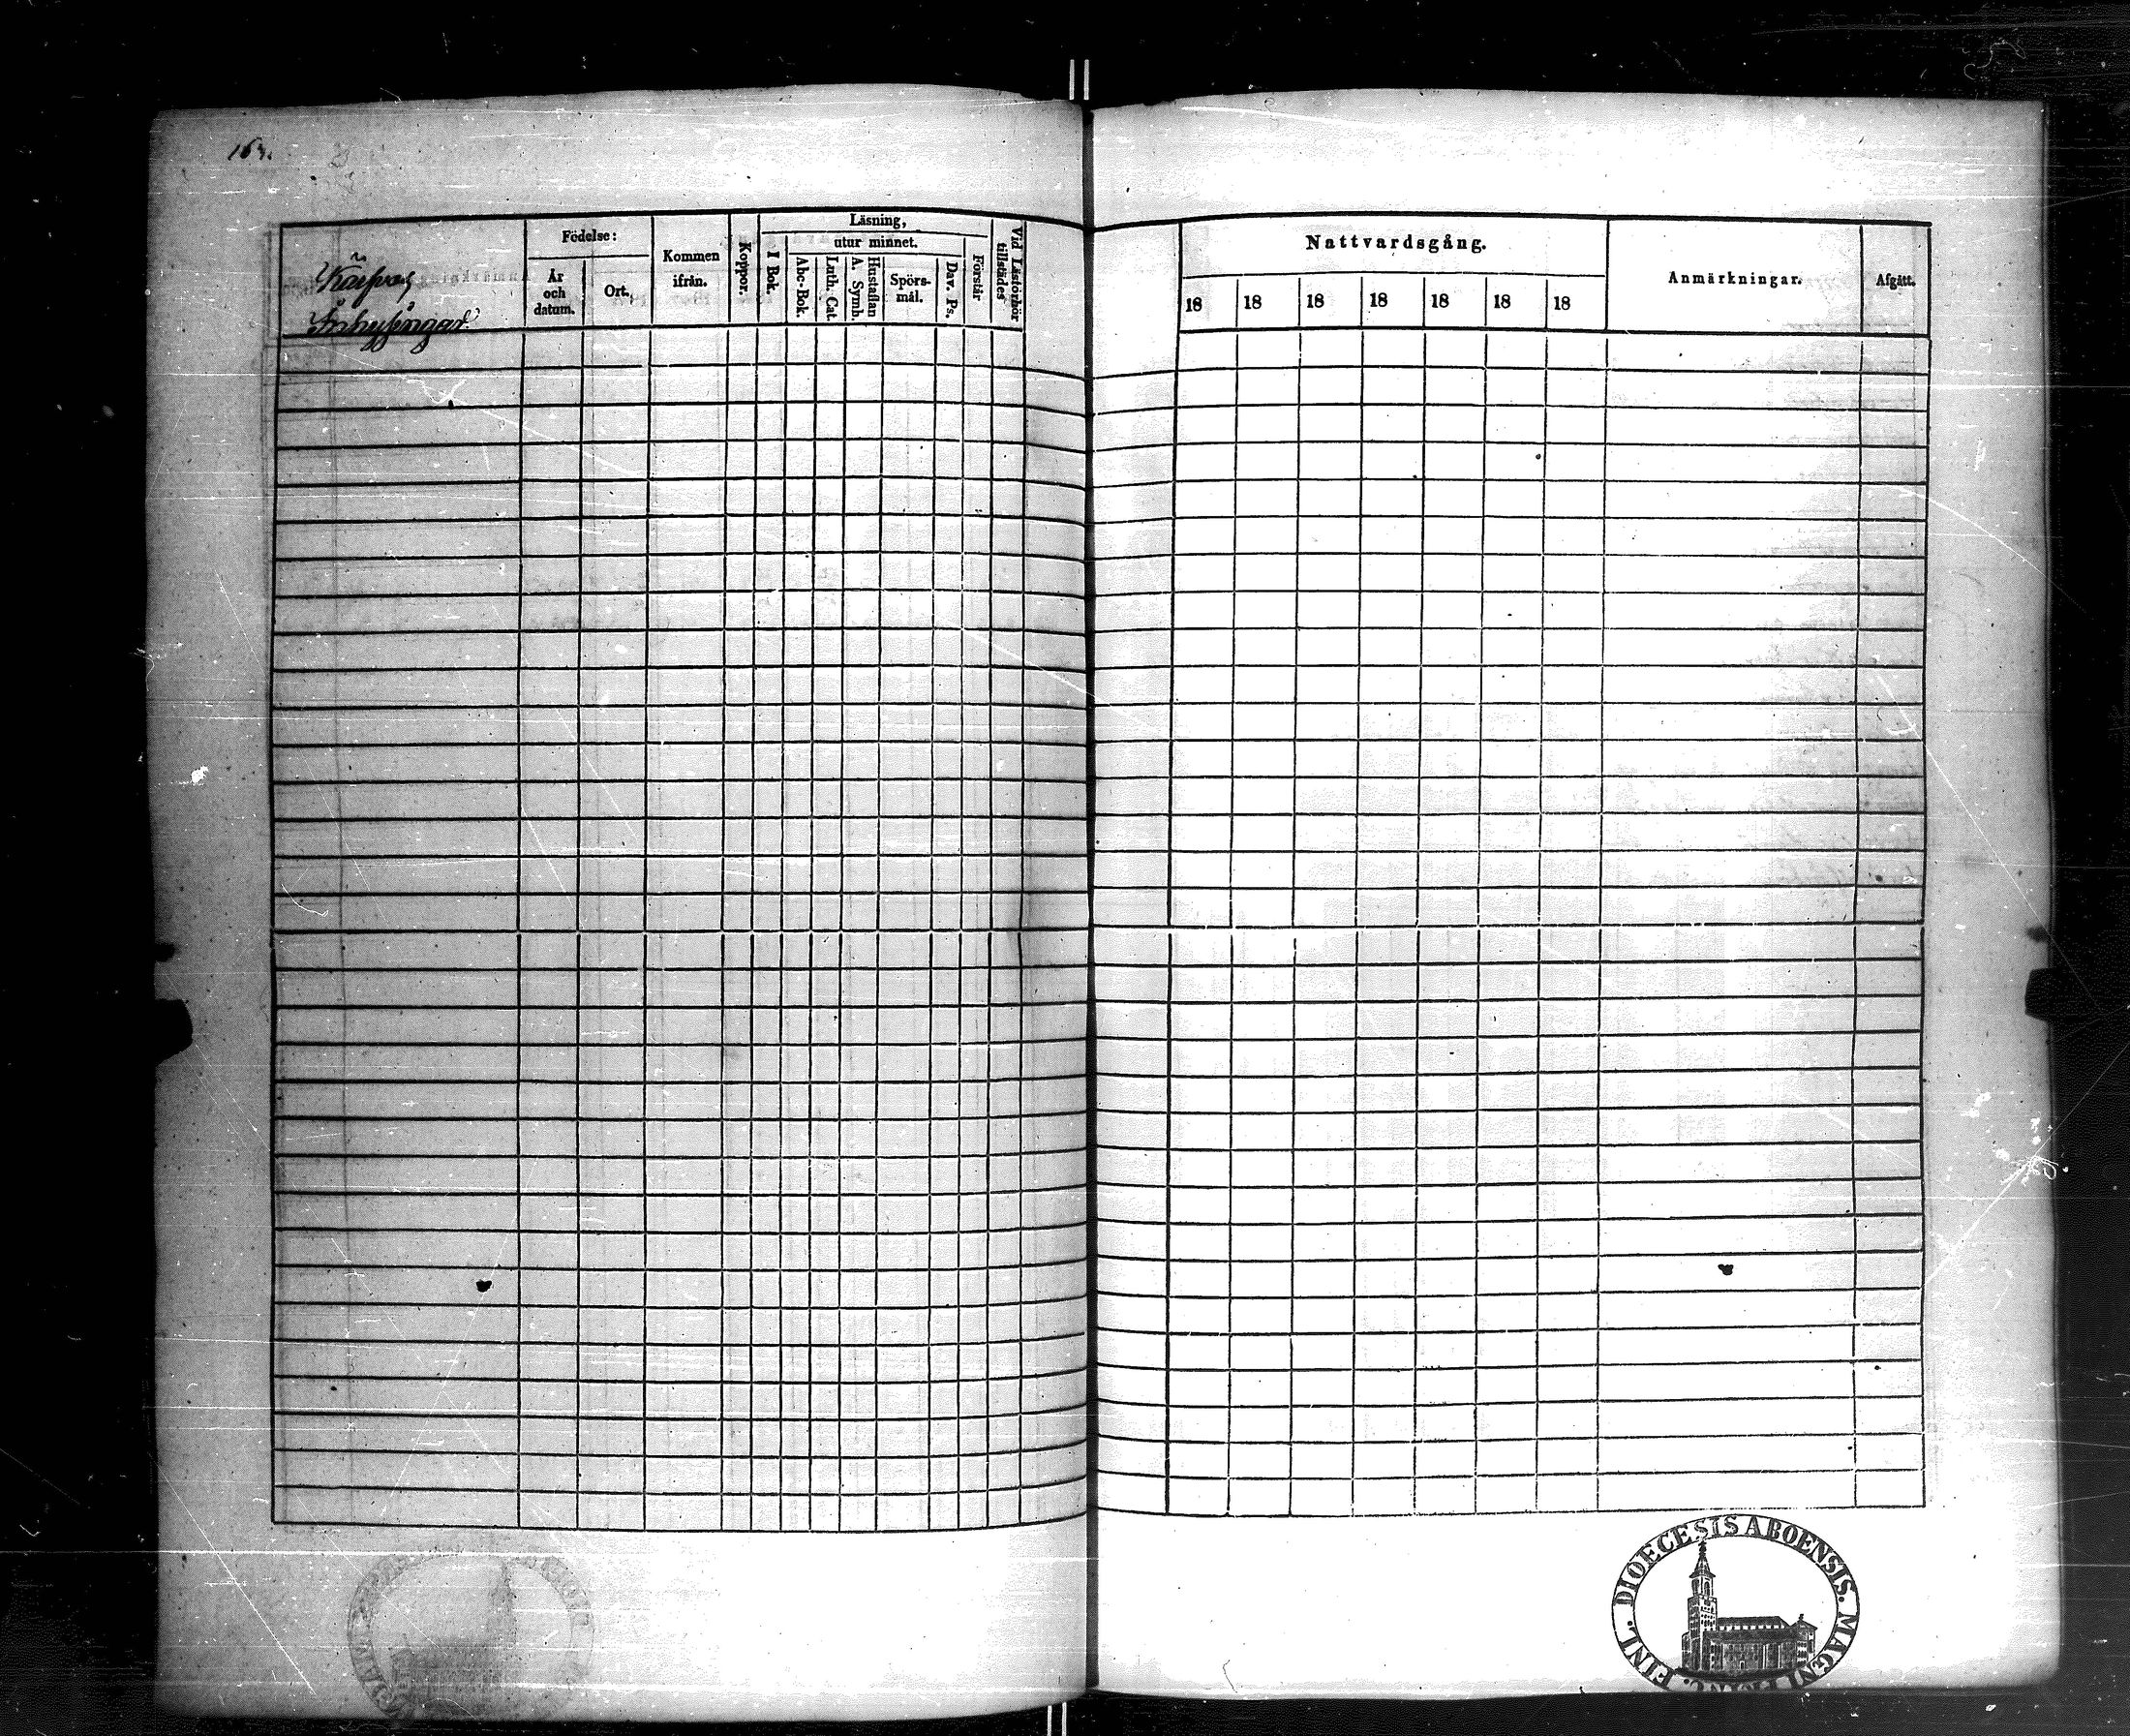 163.
Födelse:
År
och
datum.
Ort.
Kommen
ifrån.
Koppor.
Läsning,
I Bok.
utur minnet.
Abc-Bok.
Luth. Cat.
Hustaflan
A. Symb.
Spörs-
mål.
Dav. Ps.
Förstår
Vid Läsförhör
tillstädes
Inhysingar
Nattvardsgång.
18 18 18 18 18 18 18
Anmärkningar.
Afgått.
DIOECESIS ABOENSIS. MAGNI DUC. FINL.